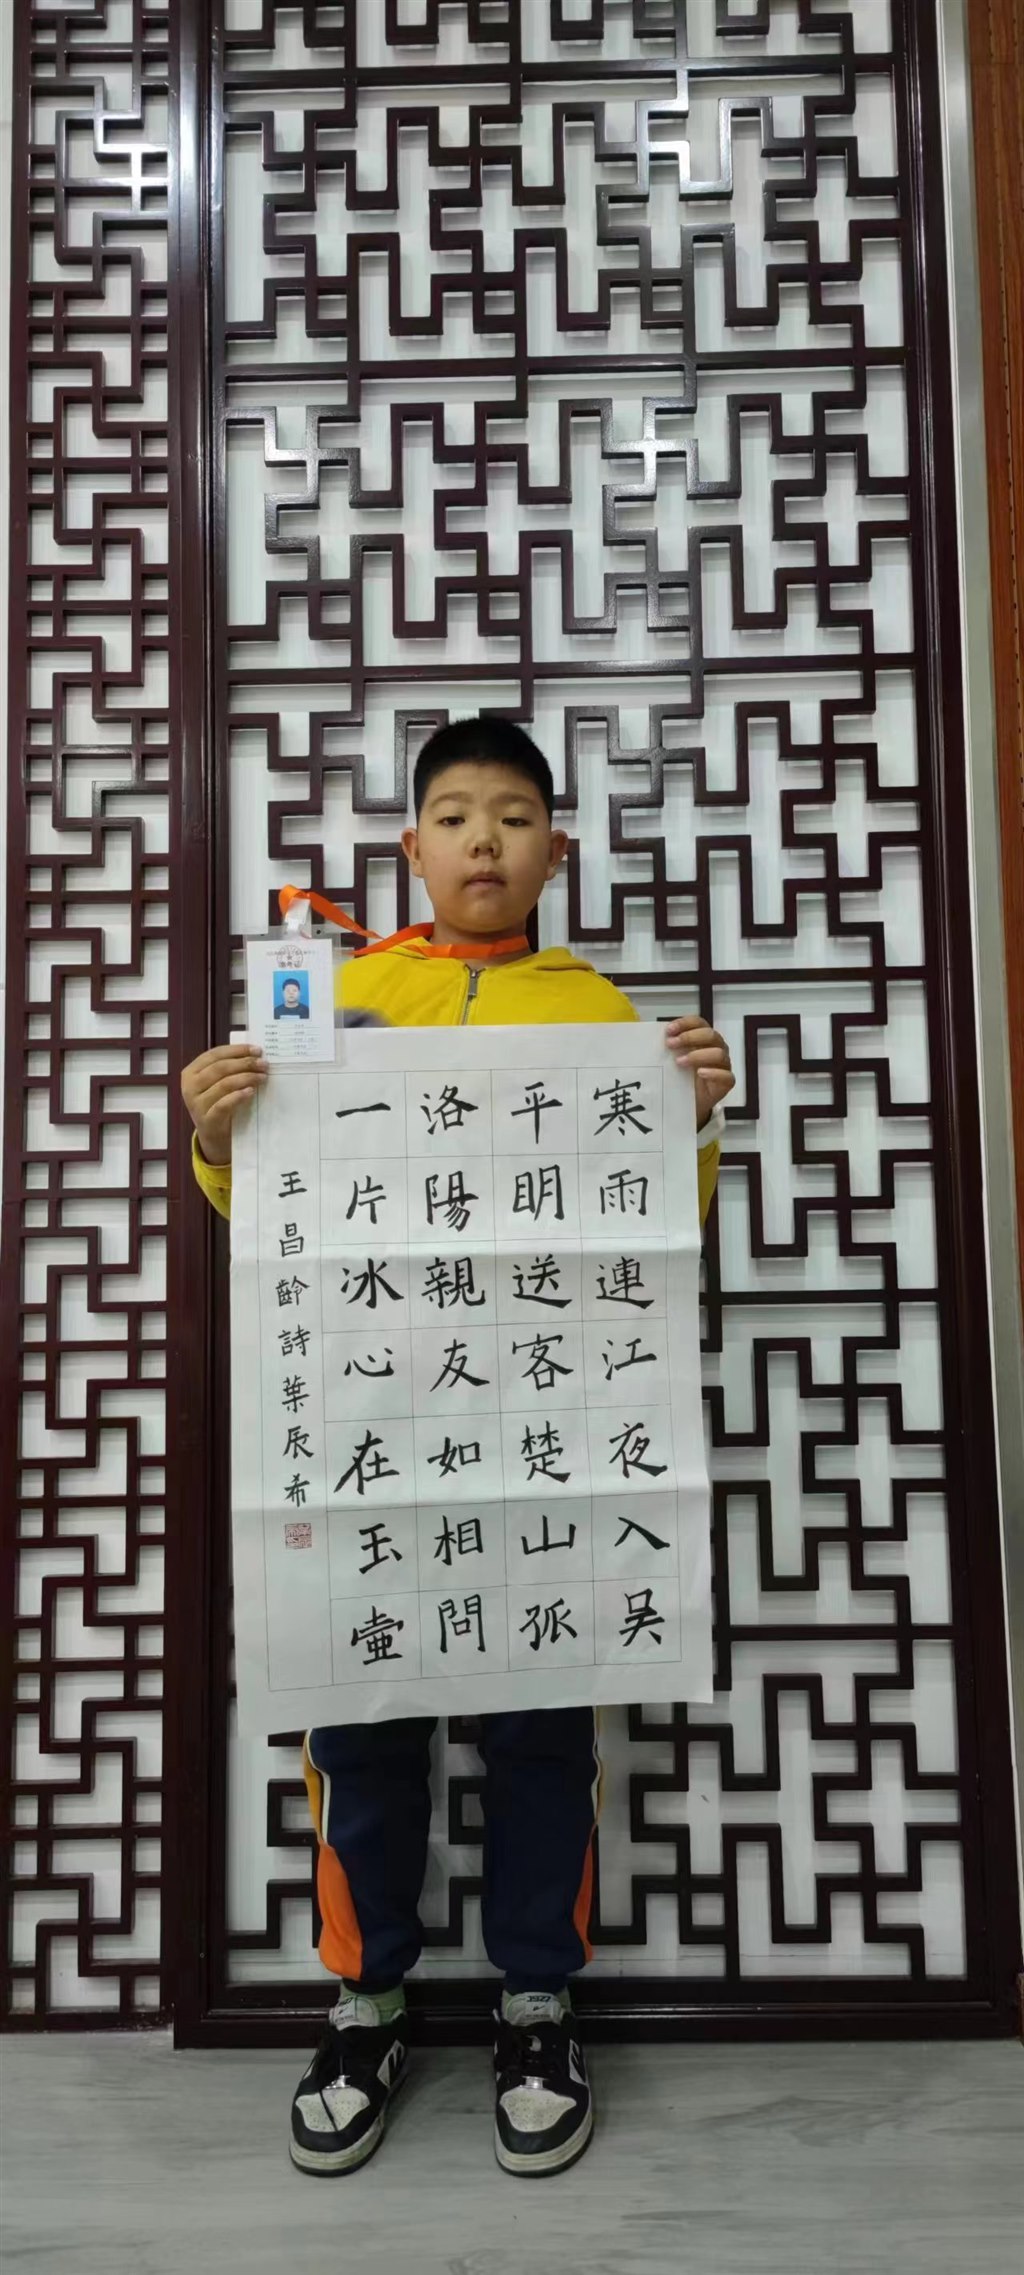 寒雨連江夜入吴
平明送客楚山孤
洛陽親友如相問
一片冰心在玉壷
王昌齡詩葉辰希